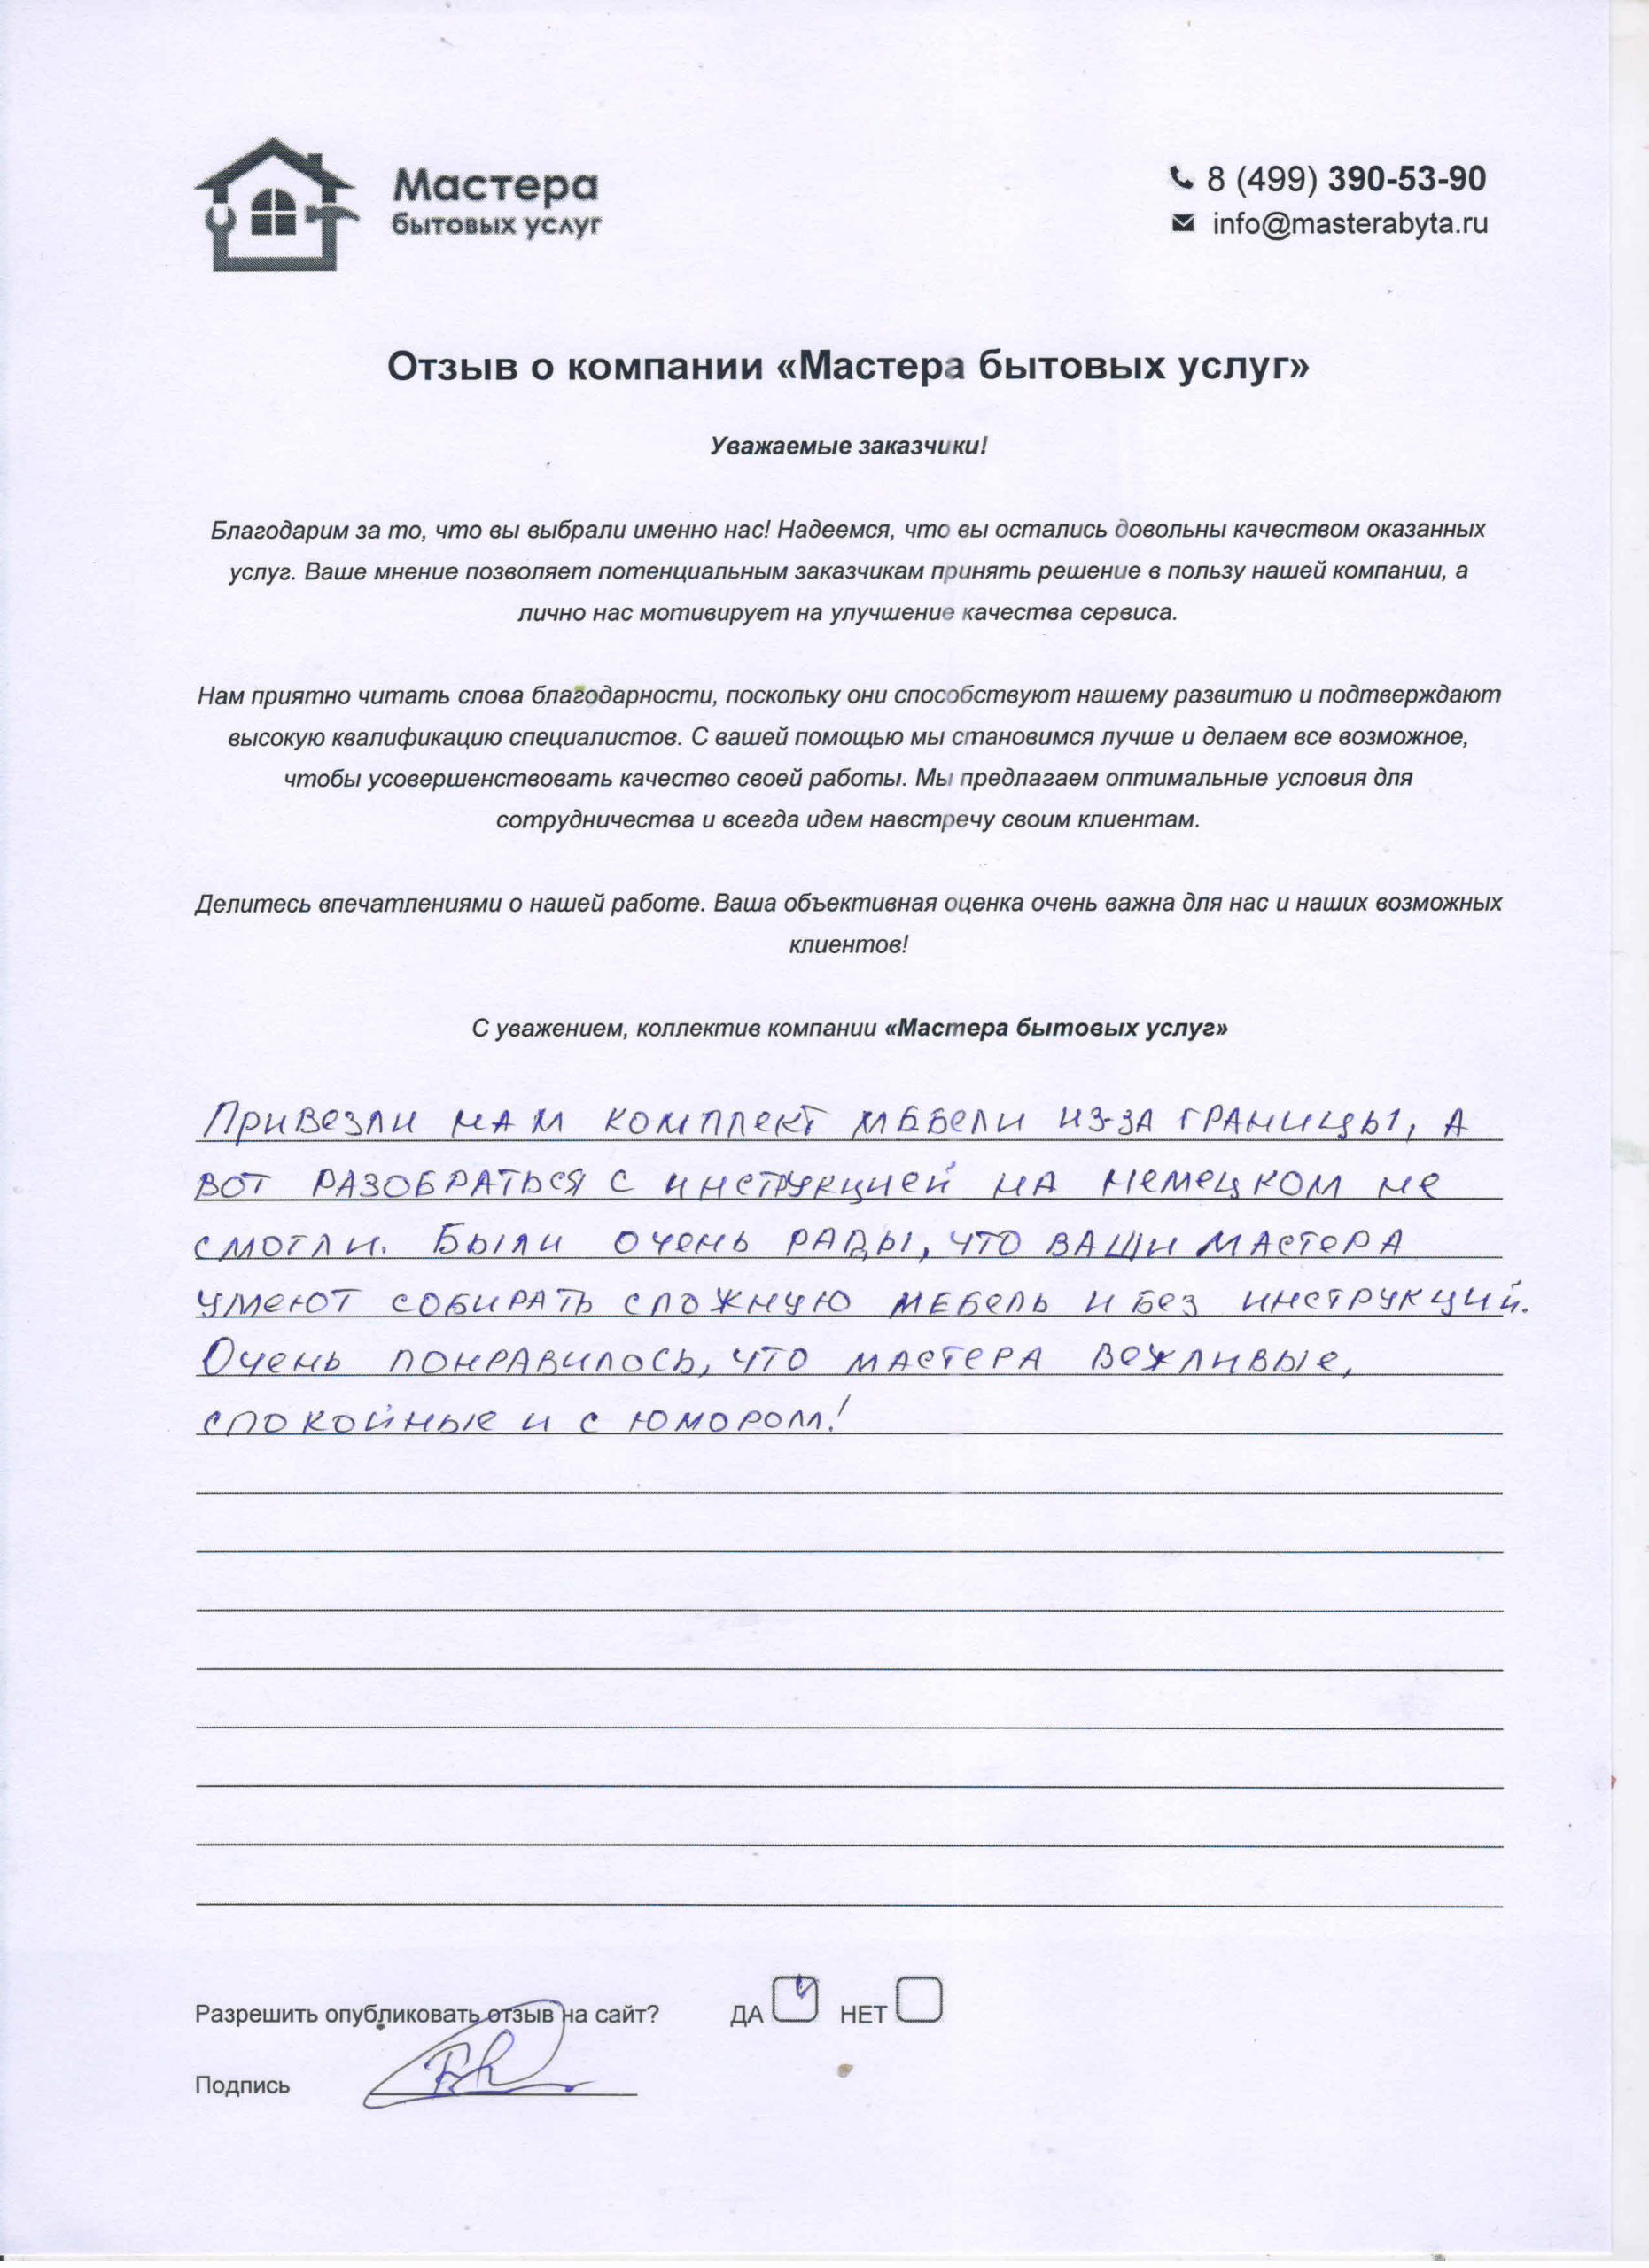 Мастера
бытовых услуг
8 (499) 390-53-90
info@masterabyta.ru
Отзыв о компании «Мастера бытовых услуг»
Уважаемые заказчики!
Благодарим за то, что вы выбрали именно нас! Надеемся, что вы остались довольны качеством оказанных
услуг. Ваше мнение позволяет потенциальным заказчикам принять решение в пользу нашей компании, а
лично нас мотивирует на улучшение качества сервиса.
Нам приятно читать слова благодарности, поскольку они способствуют нашему развитию и подтверждают
высокую квалификацию специалистов. С вашей помощью мы становимся лучше и делаем все возможное,
чтобы усовершенствовать качество своей работы. Мы предлагаем оптимальные условия для
сотрудничества и всегда идем навстречу своим клиентам.
Делитесь впечатлениями о нашей работе. Ваша объективная оценка очень важна для нас и наших возможных
клиентов!
С уважением, коллектив компании «Мастера бытовых услуг»
Привезли нам комплект мебели из-за границы, а
вот разобраться с инструкцией на немецком не
смогли. Были очень рады, что ваши мастера
умеют собирать сложную мебель и без инструкций.
Очень понравилось, что мастера вежливые,
спокойные и с юмором!
Разрешить опубликовать отзыв на сайт? ДА НЕТ
Подпись